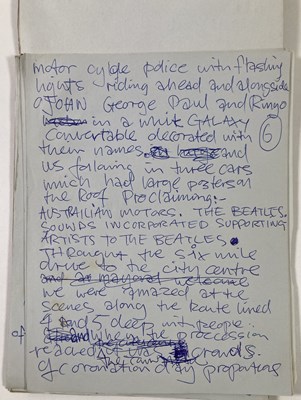 motor cycle police with flashing
lights riding ahead and alongside
of JOHN George Paul and Ringo
in a white GALAXY
convertable decorated with
6
them names. and
us following in three cars
which had large posters on
the Roof Proclaiming:-
AUSTRALIAN MOTORS. THE BEATLES.
SOUNDS INCORPORATED SUPPORTING
ARTISTS TO THE BEATLES.
Throughout the six mile
drive to the city centre
and a mayoral welcome
we were amazed at the
scenes along the route lined
4 and 5 deep with people.
the proccession
reached the crowds.
of
of coronation day proportions